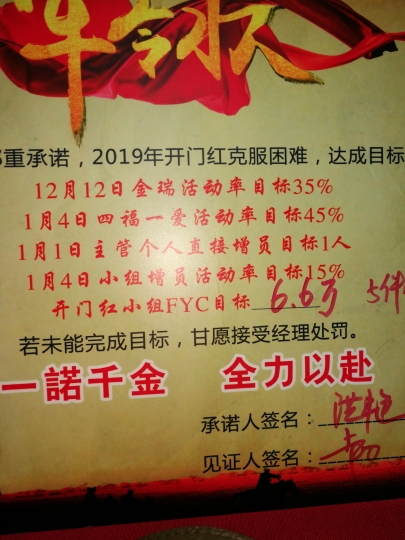 军令状
郑重承诺，2019年开门红克服困难，达成目标
12月12日金瑞活动率目标35%
1月4日四福一爱活动率目标45%
1月1日主管个人直接增员目标1人
1月4日小组增员活动率目标15%
开门红小组FYC目标 6.6万 5件
若未能完成目标，甘愿接受经理处罚。
一諾千金 全力以赴
承诺人签名：
见证人签名：